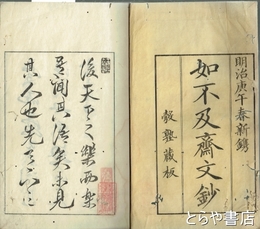 明治庚午春新鐫
如不及齋文鈔
毅塾藏板
後天下之樂而樂
吾聞其語矣未見
其人也先生以
とらや書店